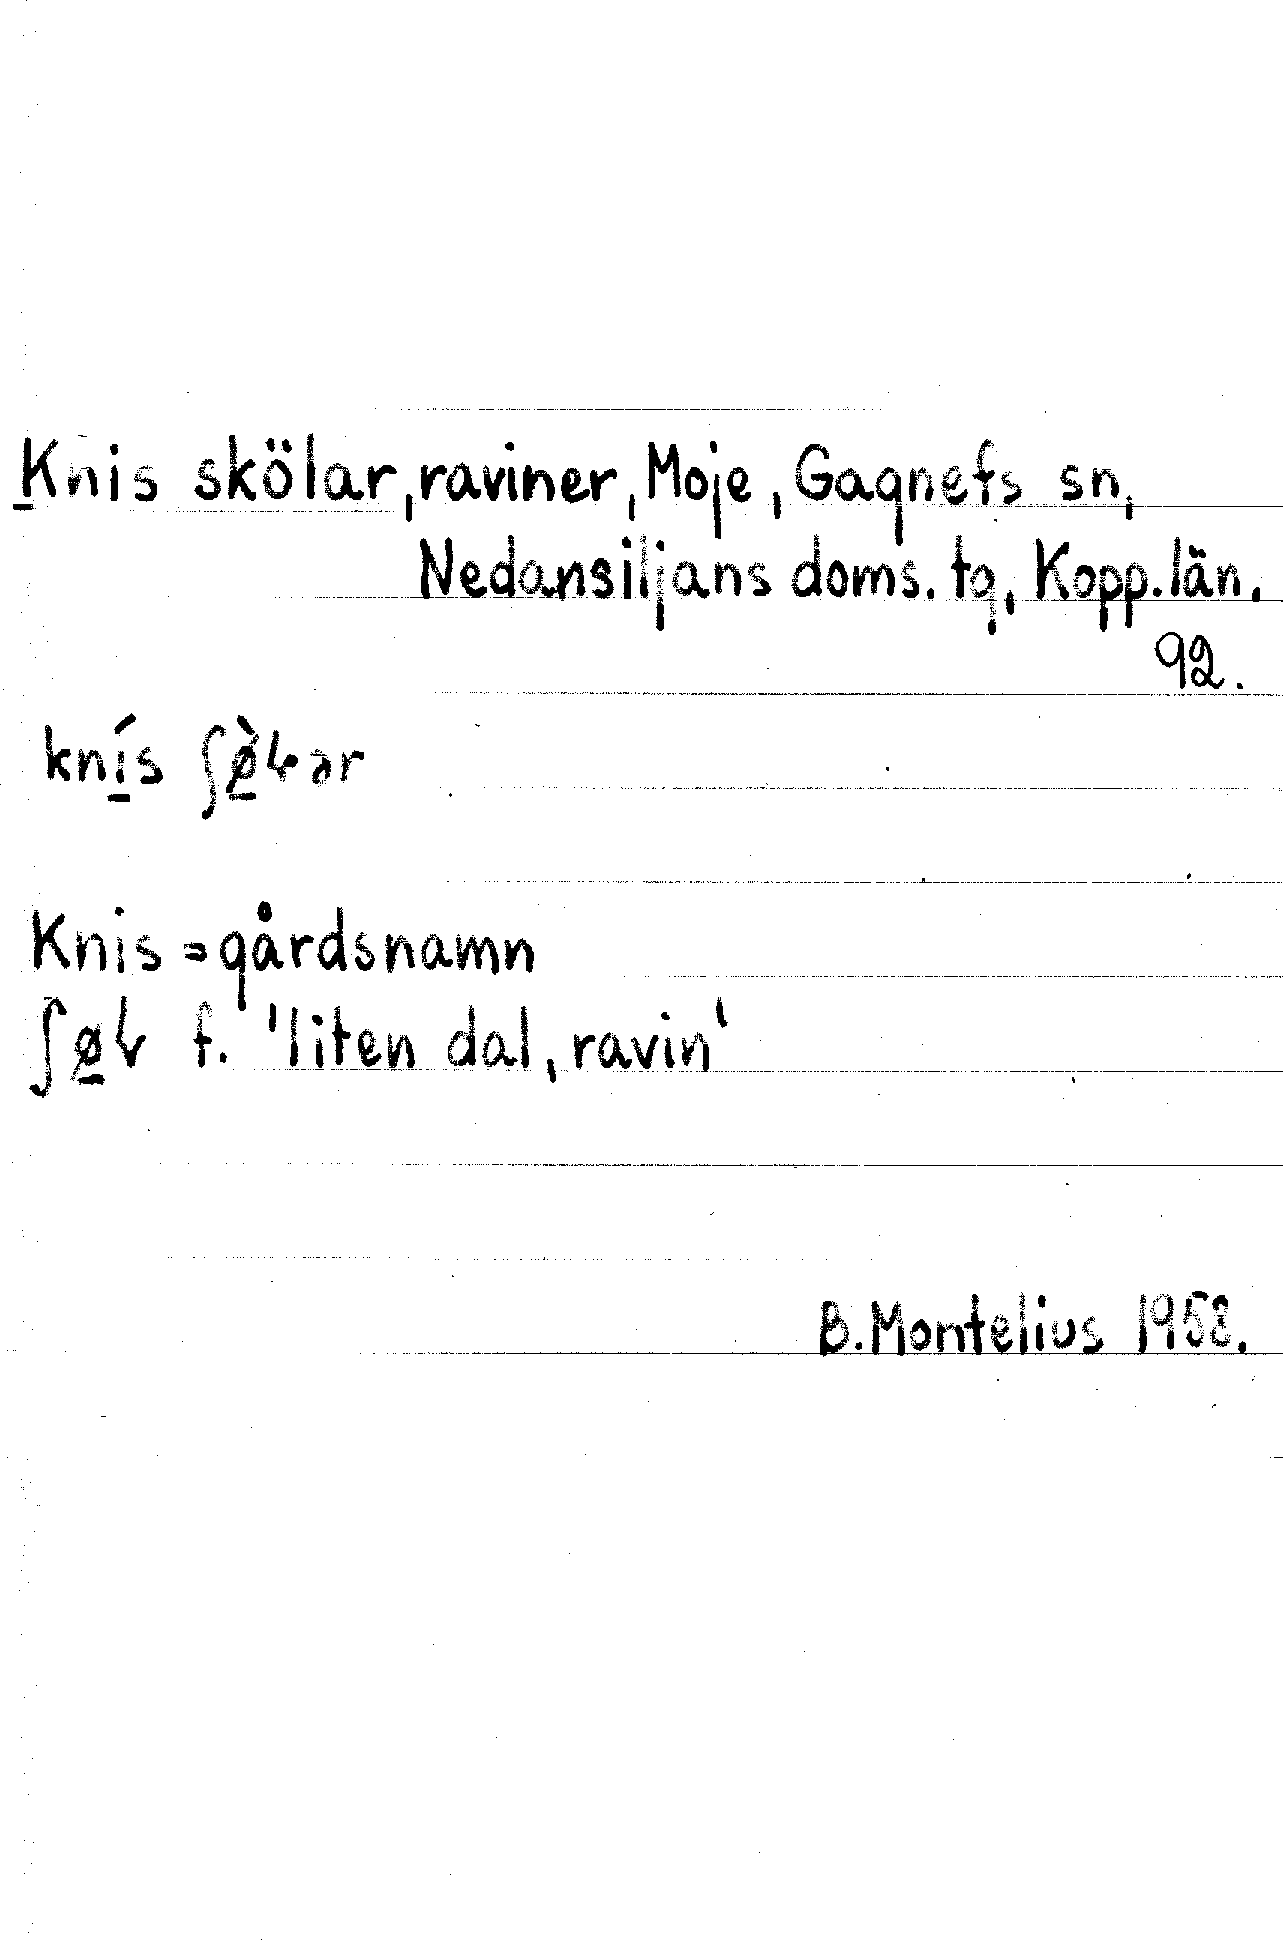 Knis skölar, raviner, Moje, Gagnefs sn,
Nedansiljans doms. tg, Kopp. län.
92.
knís ʃø̀ɫər
Knis = gårdsnamn
ʃøɫ f. 'liten dal, ravin'
B. Montelius 1958.